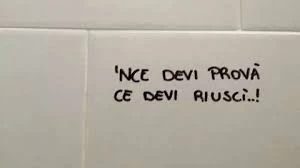 'NCE DEVI PROVÀ
CE DEVI RIUSCÌ..!